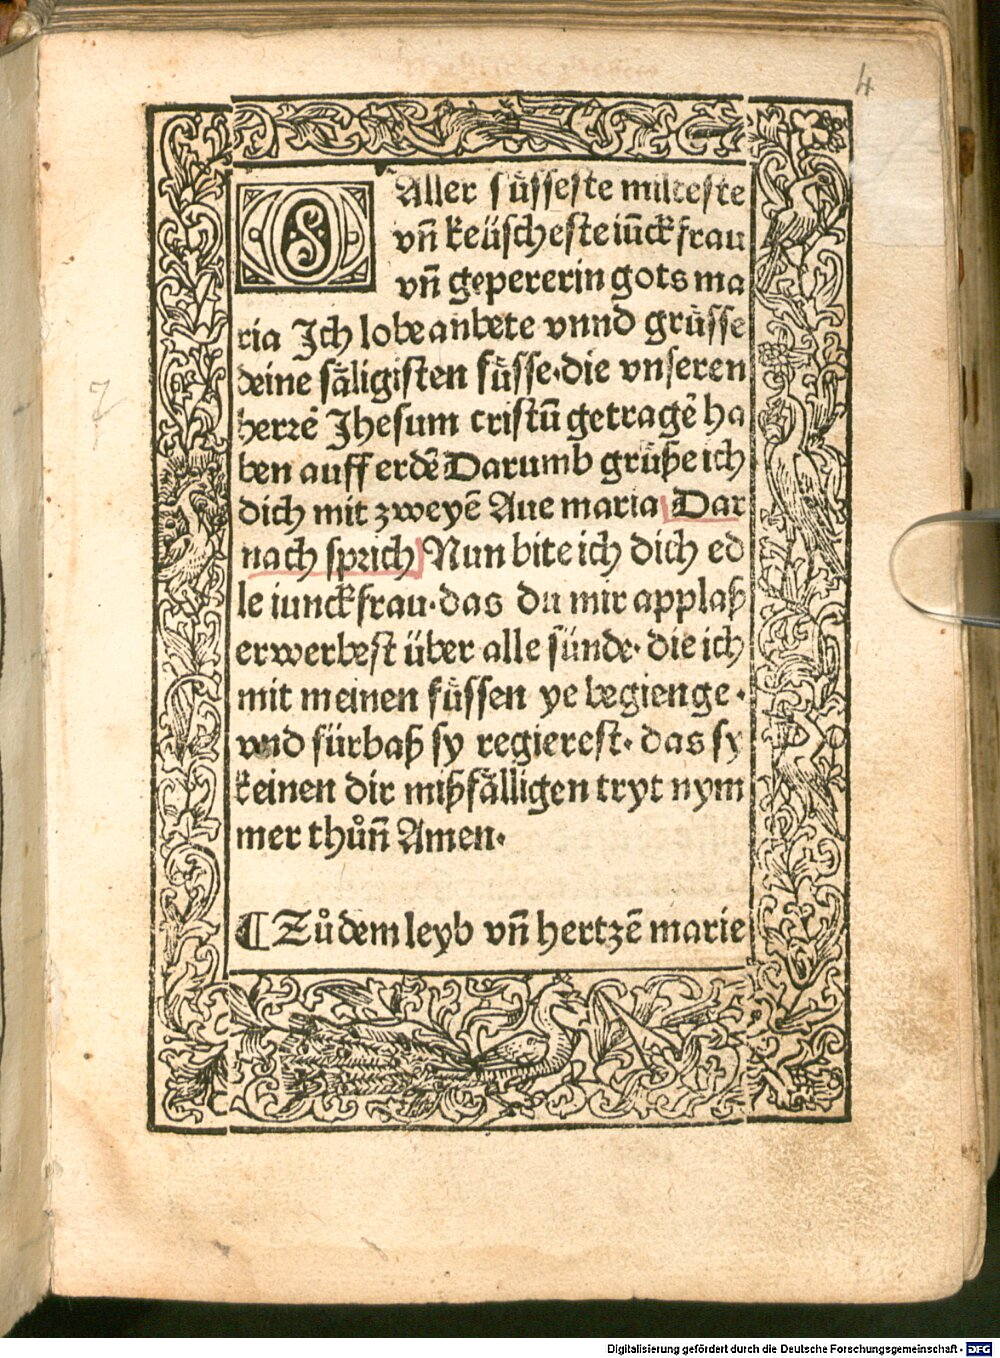 4
O Aller su̎sseste milteste
vn̄ keüscheste iūckfrau
vn̄ gepererin gots ma
ria Jch lobe anbete vnnd gru̎sse
deine sa̎ligisten fu̎sse·die vnseren
herrē Jhesum cristū getragē ha
ben auff erdē Darumb gru̎ße ich
dich mit zweyē Aue maria Dar
nach sprich Nun bite ich dich ed
le iunckfrau·das du mir applaß
erwerbest über alle sünde·die ich
mit meinen fu̎ssen ye begienge·
vnd fürbaß sy regierest·das sy
keinen dir mißfa̎lligen tryt nym
mer thůn̄ Amen·
¶ Zů dem leyb vn̄ hertzē marie
Digitalisierung gefördert durch die Deutsche Forschungsgemeinschaft - DFG